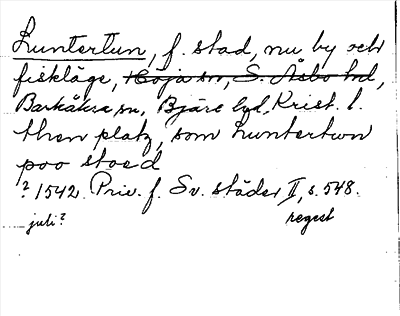 Luntertun, f. stad, nu by och
fiskläge, Höja sn, S. Åsbo hd,
Barkåkra sn, Bjäre hd, Krist. l.
then platz, som Luntertwn
poo stoed
? 1542. Priv. f. Sv. städer II, s. 548.
juli? regest